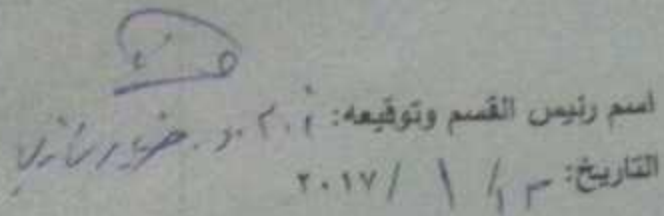 اسم رئيس القسم وتوقيعه: أ.م.د.
التاريخ: ١٣ / ١ / ٢٠١٧